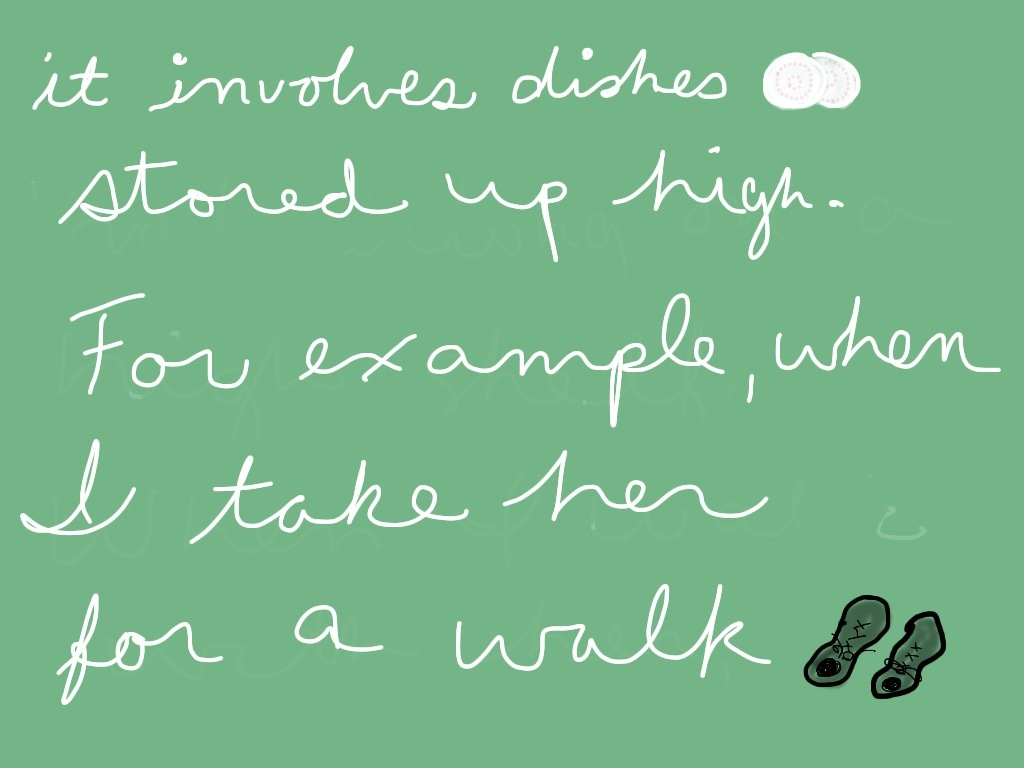 it involves dishes
stored up high.
For example, when
I take her
for a walk